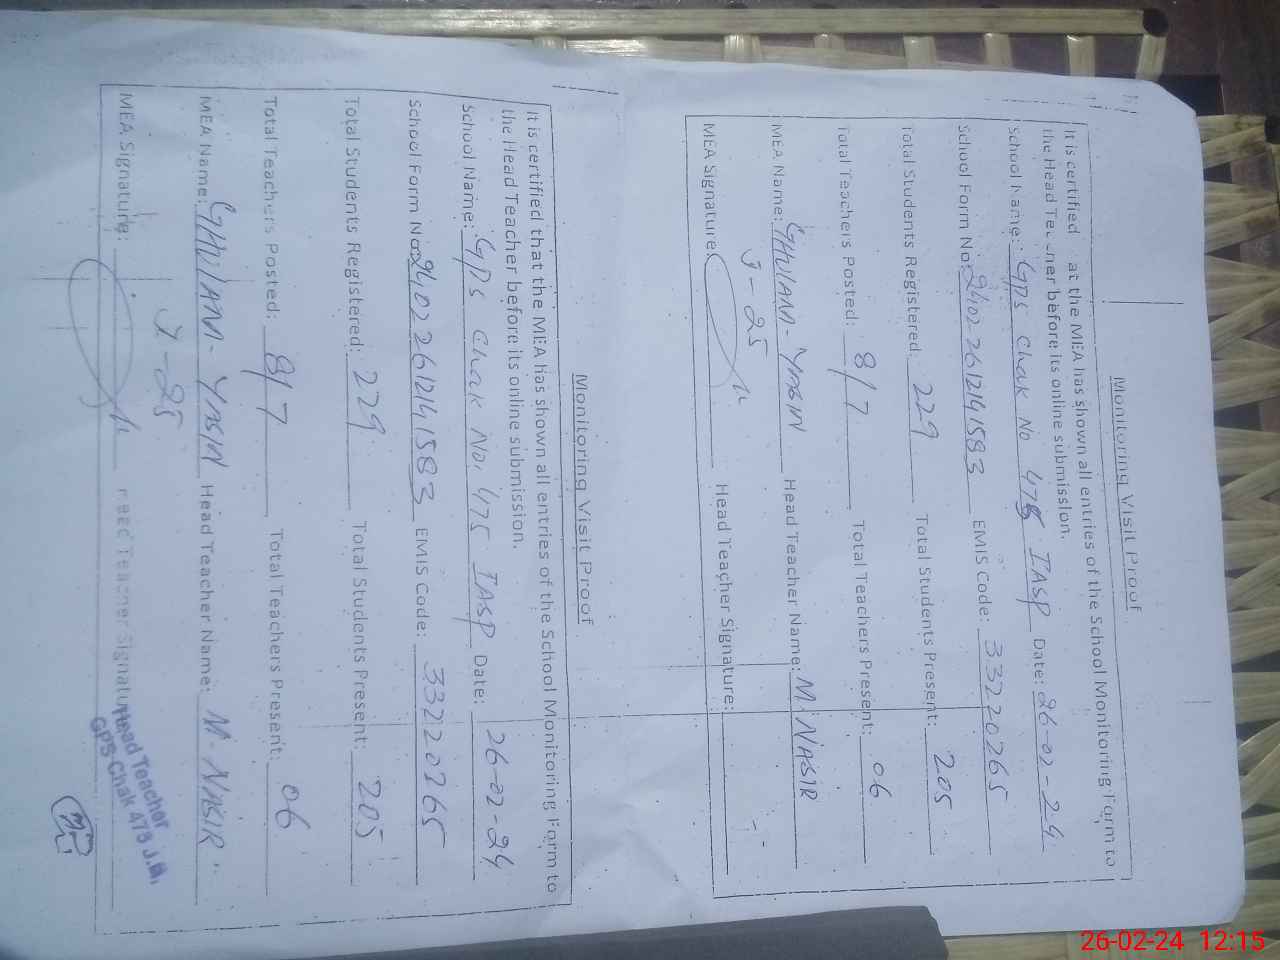 Monitoring Visit Proof
It is certified at the MEA has shown all entries of the School Monitoring Form to
the Head Teacher before its online submission.
School Name: GPS Chak No 475 JASP Date: 26-02-24
School Form No: 2402261241583 EMIS Code: 33220265
Total Students Registered: 229 Total Students Present: 205
Total Teachers Posted: 8/7 Total Teachers Present: 06
MEA Name: GHULAM-YASIN Head Teacher Name: M. NASIR
J-25
MEA Signature: Head Teacher Signature:
Monitoring Visit Proof
It is certified that the MEA has shown all entries of the School Monitoring Form to
the Head Teacher before its online submission.
School Name: GPS Chak No. 475 JASP Date: 26-02-24
School Form No: 2402261241583 EMIS Code: 33220265
Total Students Registered: 229 Total Students Present: 205
Total Teachers Posted: 8/7 Total Teachers Present: 06
MEA Name: GHULAM-YASIN Head Teacher Name: M. NASIR
J-25
MEA Signature: Head Teacher Signature:
Head Teacher
GPS Chak 475 J.B.
26-02-24 12:15